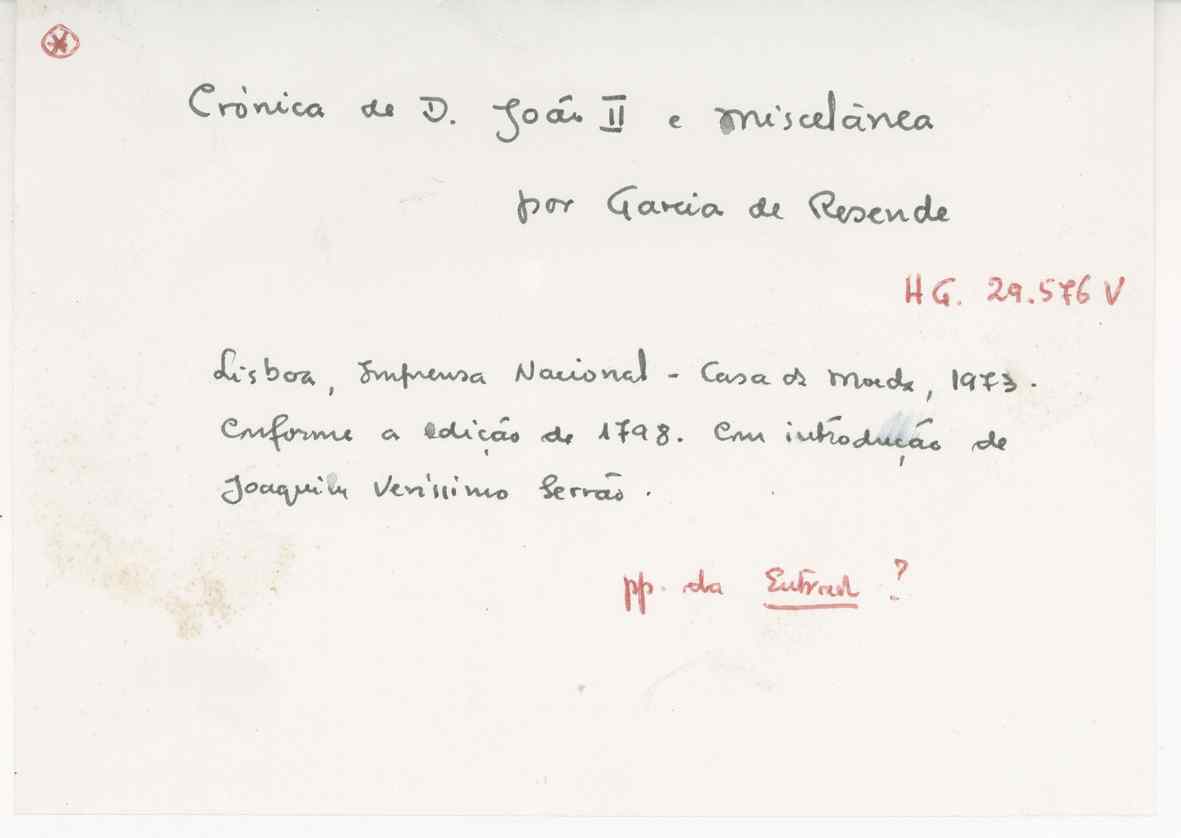 Crónica de D. João II e miscelânea
por Garcia de Resende
HG. 29.576 V
Lisboa, Imprensa Nacional - Casa da Moeda, 1973.
Conforme a edição de 1798. Com introdução de
Joaquim Veríssimo Serrão.
pp. da Entrada ?